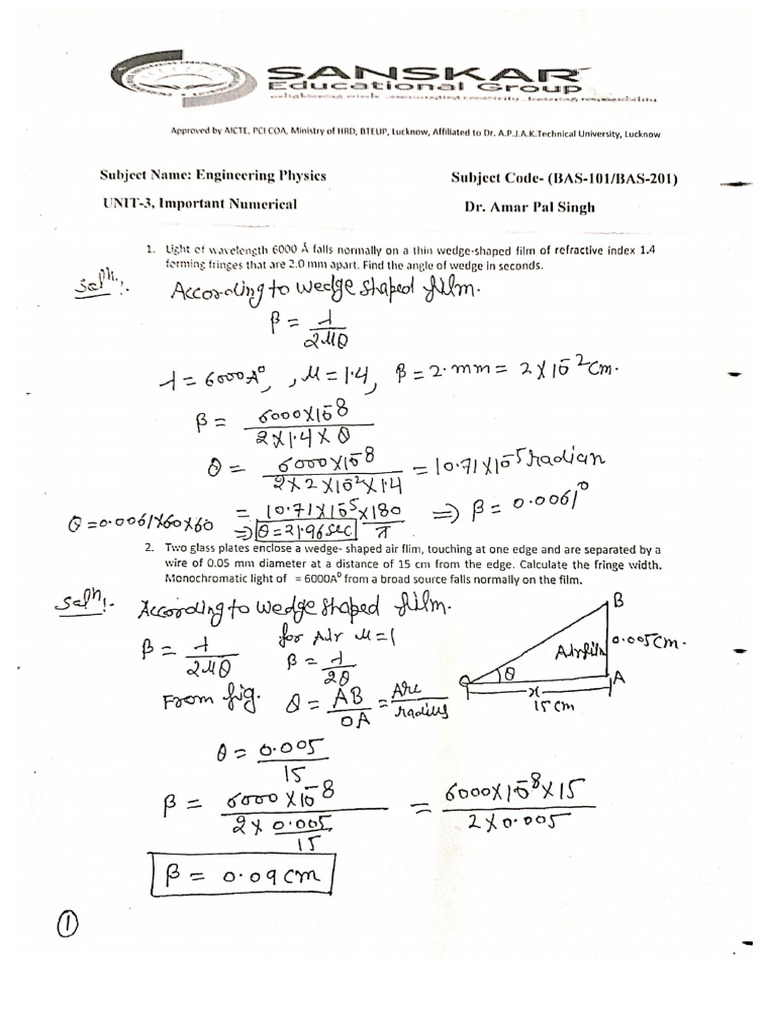 SANSKAR
Educational Group
Approved by AICTE, PCI COA, Ministry of HRD, BTEUP, Lucknow, Affiliated to Dr. A.P.J.A.K.Technical University, Lucknow
Subject Name: Engineering Physics Subject Code- (BAS-101/BAS-201)
UNIT-3, Important Numerical Dr. Amar Pal Singh
1. Light of wavelength 6000 Å falls normally on a thin wedge-shaped film of refractive index 1.4
forming fringes that are 2.0 mm apart. Find the angle of wedge in seconds.
Solⁿ!. According to wedge shaped film.
β = λ/2μθ
λ = 6000A°, , μ = 1.4, β = 2. mm = 2 X 10⁻² Cm.
β = 6000X10⁻⁸ / 2 X 1.4 X θ
θ = 6000X10⁻⁸ / 2 X 2 X 10⁻² X 1.4 = 10.71 X 10⁻⁵ radian
= 10.71 X 10⁻⁵ X 180 / π ⇒ β = 0.0061°
θ = 0.0061X60X60 ⇒ θ = 21.96 sec
2. Two glass plates enclose a wedge- shaped air flim, touching at one edge and are separated by a
wire of 0.05 mm diameter at a distance of 15 cm from the edge. Calculate the fringe width.
Monochromatic light of = 6000A⁰ from a broad source falls normally on the film.
Solⁿ!. According to wedge shaped film.
β = λ/2μθ for Air μ = 1
β = λ/2θ
From fig. θ = AB/OA = Arc/radius
B
0.005cm.
Air film
O θ A
x
15 cm
θ = 0.005/15
β = 6000 X 10⁻⁸ / 2 X 0.005/15 = 6000X10⁻⁸X15 / 2 X 0.005
β = 0.09 cm
1